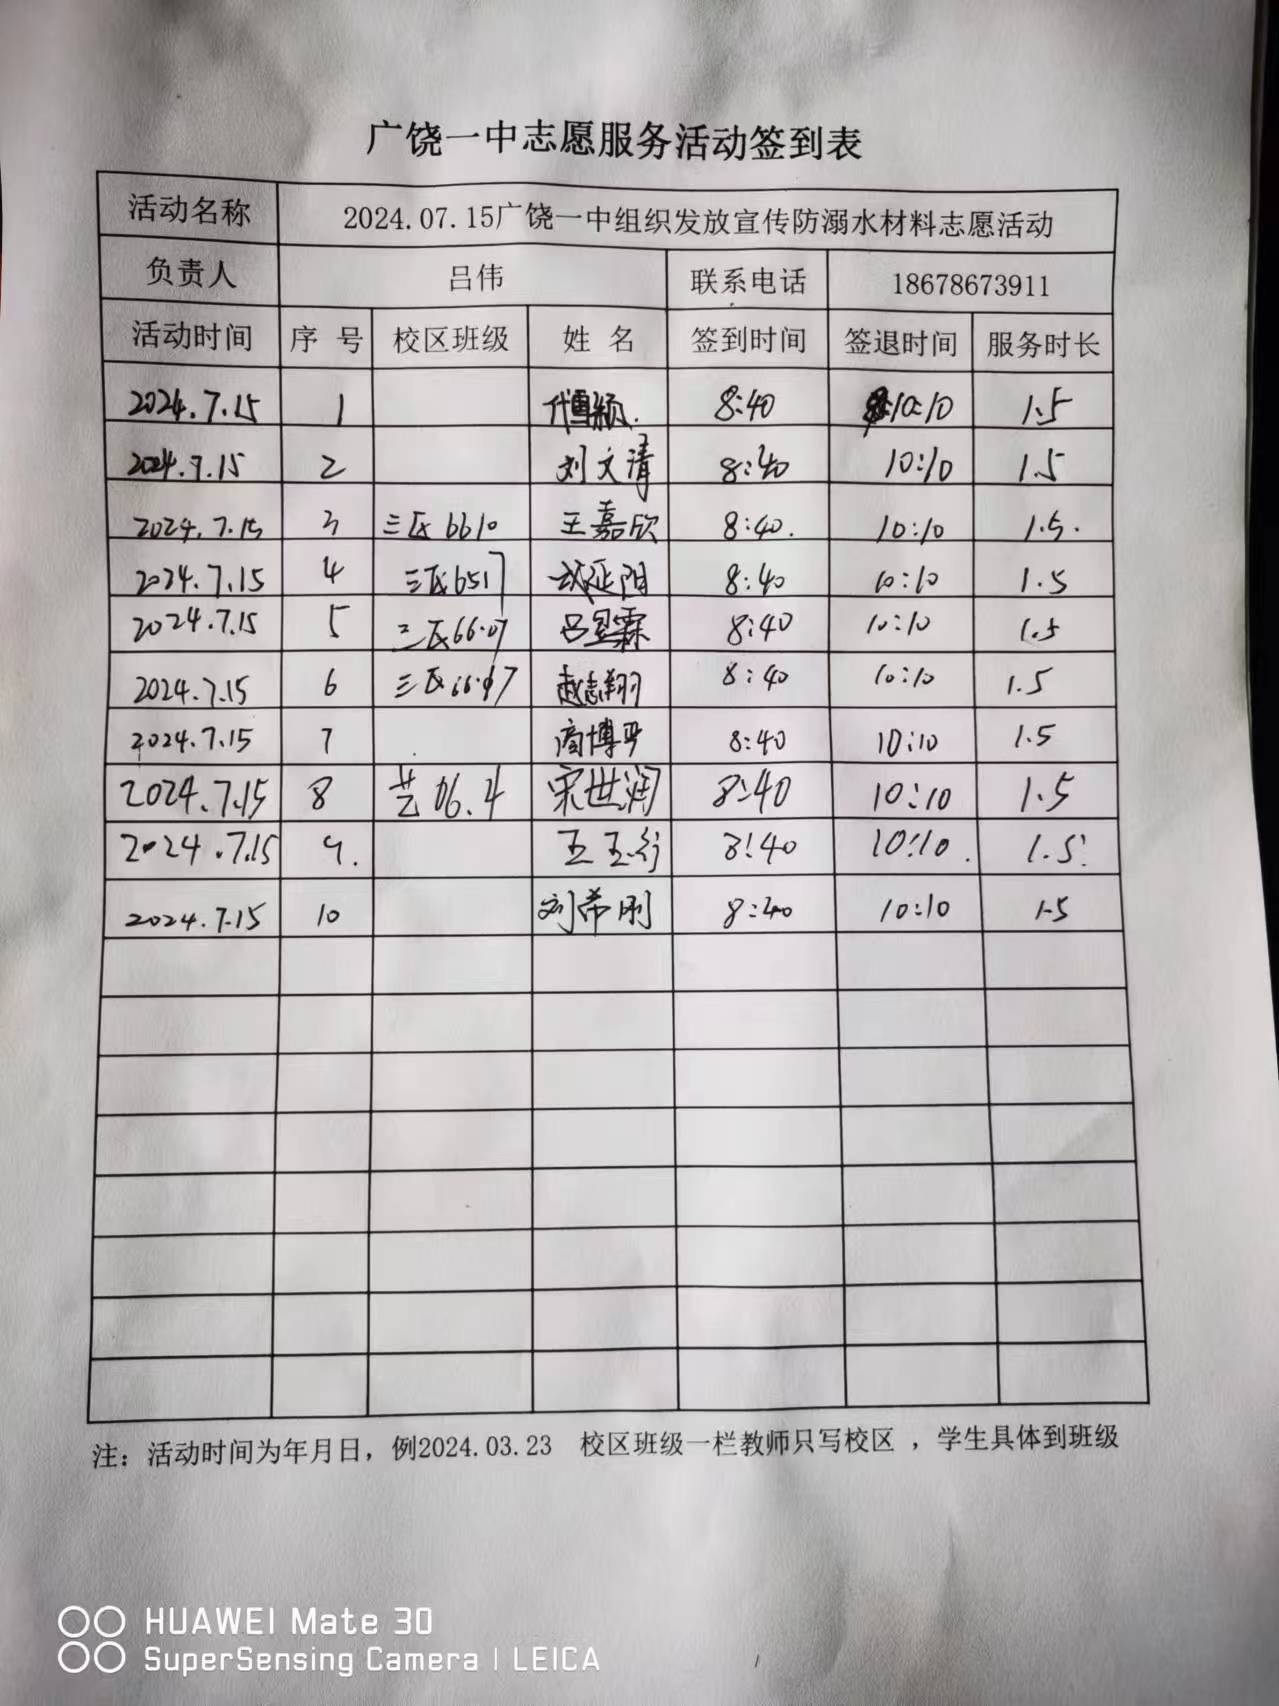 广饶一中志愿服务活动签到表
活动名称 2024.07.15广饶一中组织发放宣传防溺水材料志愿活动
负责人 吕伟 联系电话 18678673911
活动时间 序号 校区班级 姓名 签到时间 签退时间 服务时长
2024.7.15 1 8:40 10:10 1.5
2024.7.15 2 刘文清 8:40 10:10 1.5
2024.7.15 3 三区6610 王嘉欣 8:40. 10:10 1.5.
2024.7.15 4 三区6517 延阳 8:40 10:10 1.5
2024.7.15 5 三区66.07 吕昱霖 8:40 10:10 1.5
2024.7.15 6 三区 赵志翔 8:40 10:10 1.5
2024.7.15 7 商博 8:40 10:10 1.5
2024.7.15 8 宋世润 8:40 10:10 1.5
2024.7.15 9. 8:40 10:10. 1.5
2024.7.15 10 刘希刚 8:40 10:10 1.5
注：活动时间为年月日，例2024.03.23 校区班级一栏教师只写校区，学生具体到班级
HUAWEI Mate 30
SuperSensing Camera | LEICA